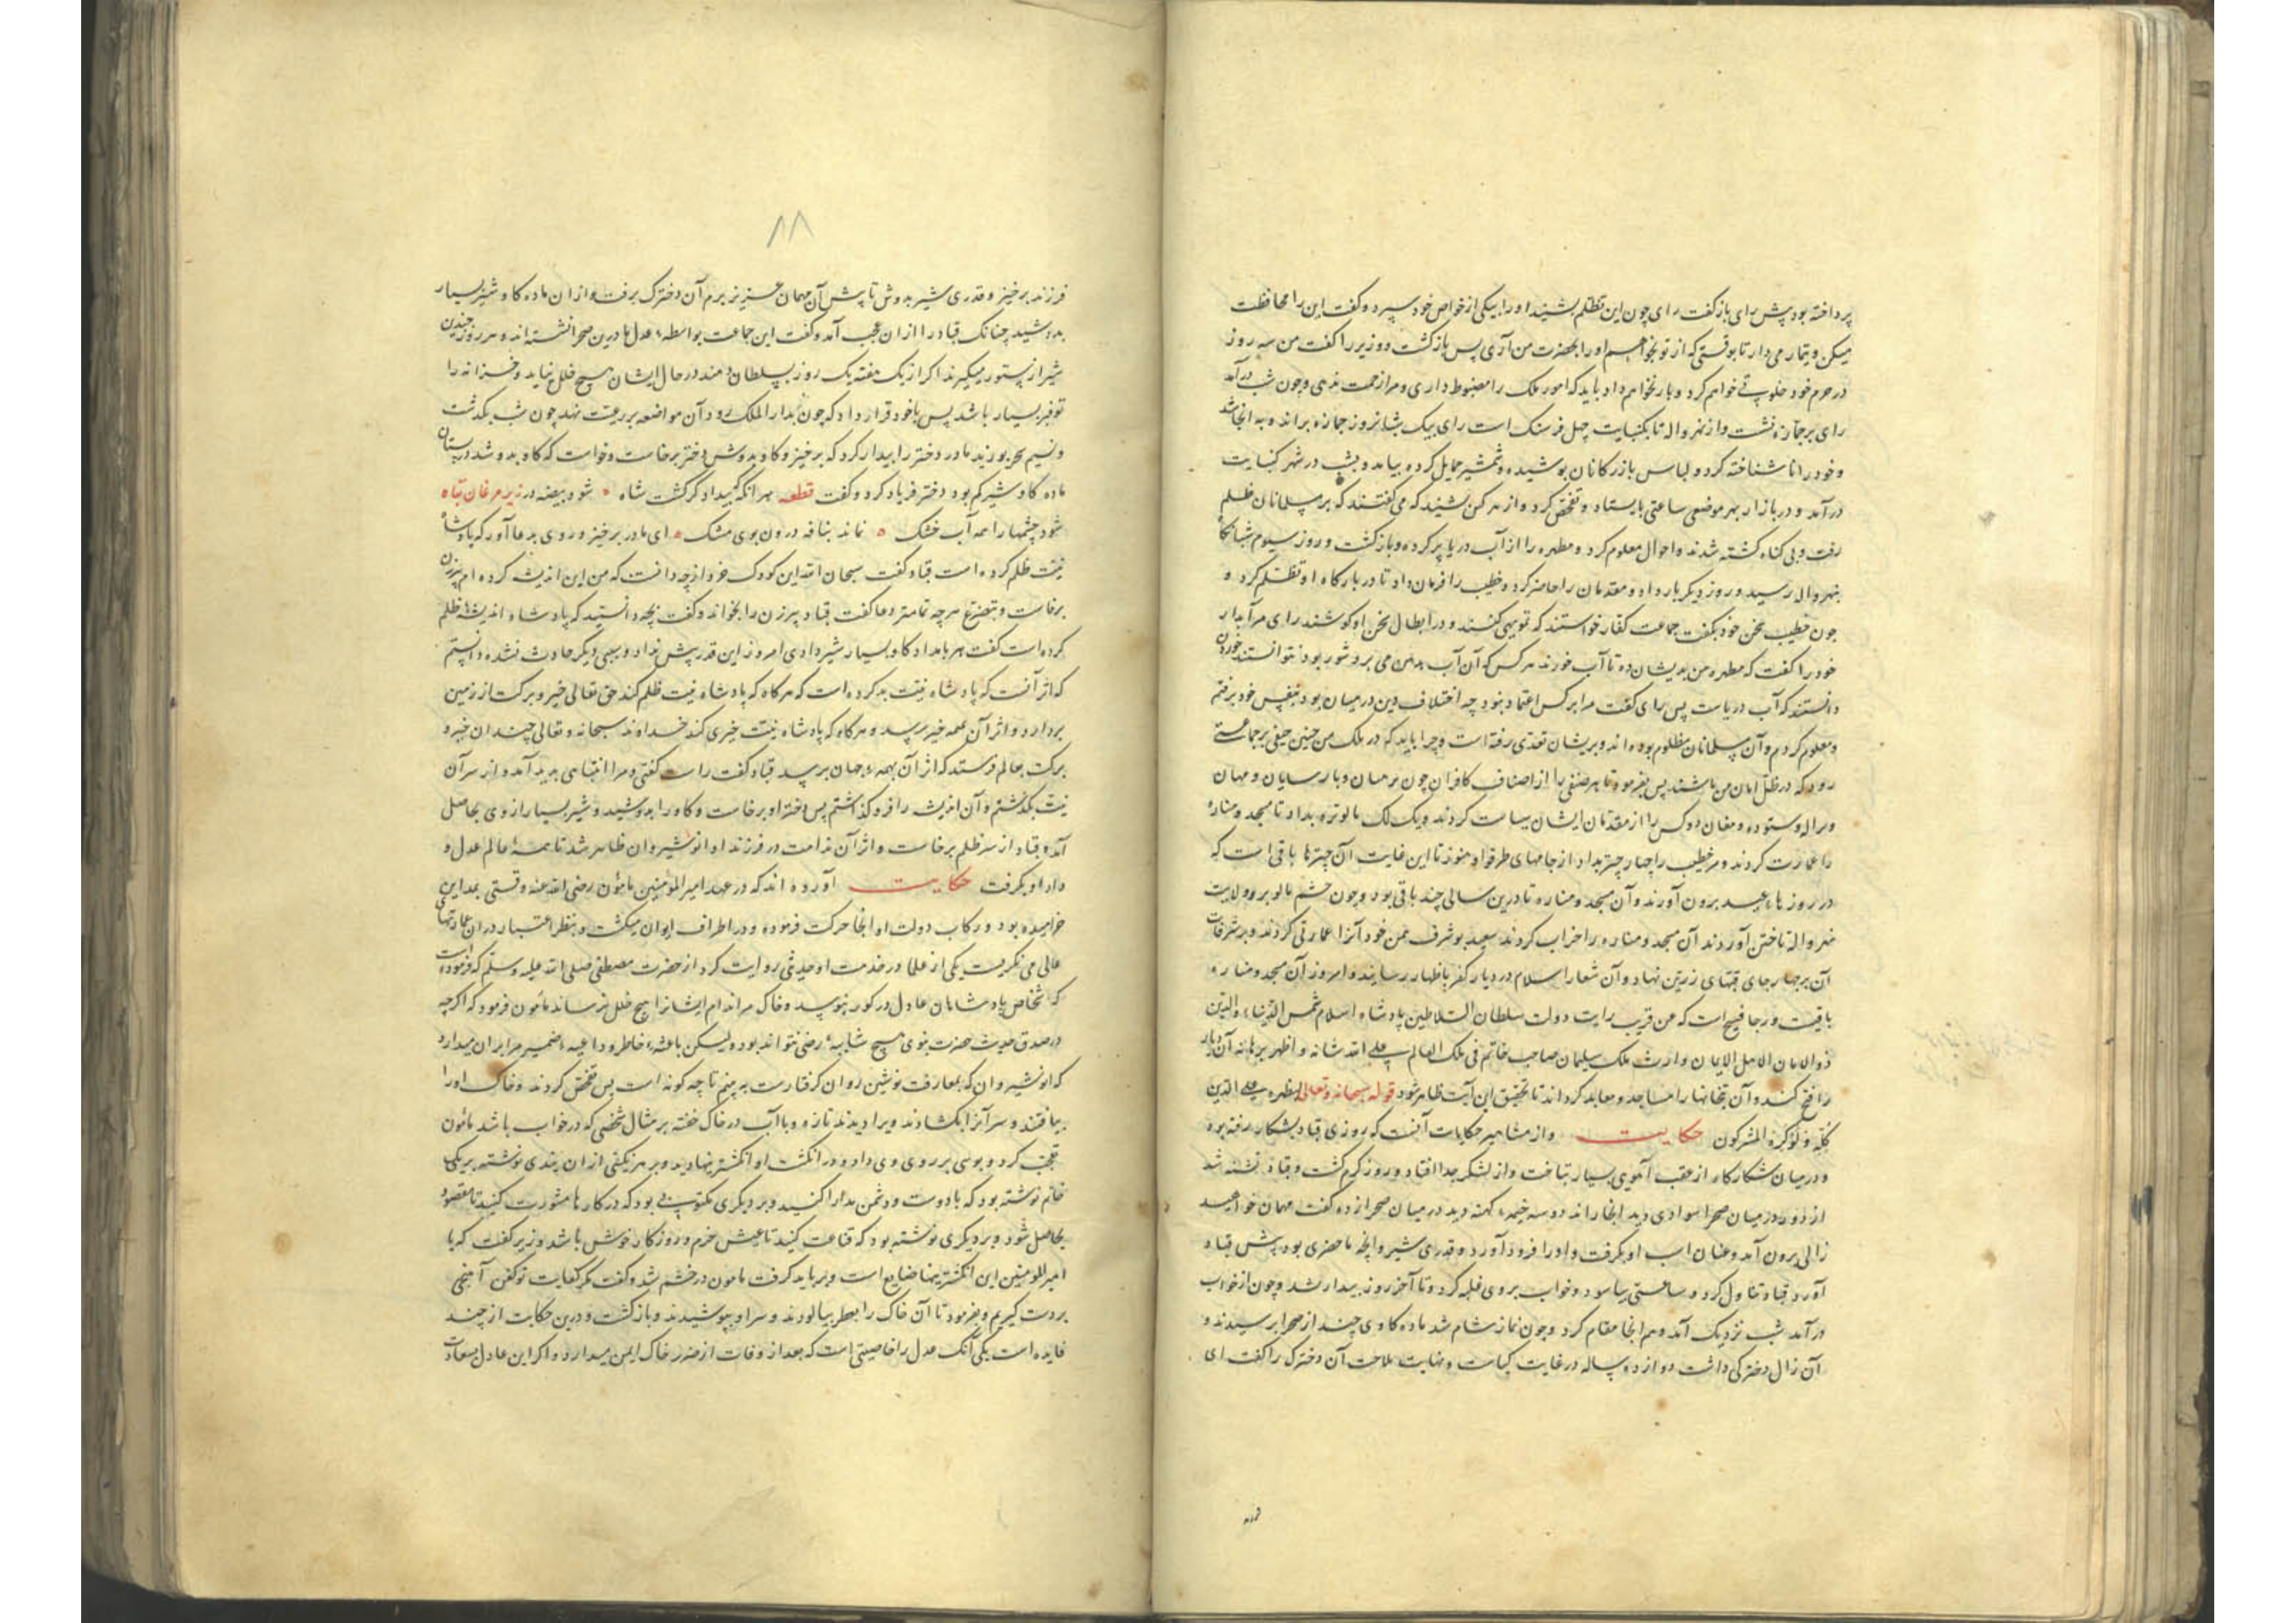 پرداخته بود پیش رای باز گفت رای چون این تظلم بشنید او را بیکی از خواص خود سپرد و گفت این را محافظت
میکن و تیمار می دار تا بوقتی که از تو بخواهم او را بحضرت من آری پس بازگشت و وزیر را گفت من سه روز
در حرم خود خلوتی خواهم کرد و بار نخواهم داد باید که امور ملک را مضبوط داری و مرا زحمت ندهی و چون شب درآمد
رای بر جمازه نشست و از نهرواله تا بکنبایت چهل فرسنک است رای بیک شبانروز جمازه براند و به آنجا شد
و خود را ناشناخته کرد و لباس بازرکانان پوشیده و شمشیر حمایل کرده بیامد و بشب در شهر کنبایت
درآمد و در بازار بهر موضعی ساعتی بایستاد و تفحص کرد و از هر کس بشنید که می گفتند که بر مسلمانان ظلم
رفت و بی کناه کشته شدند و احوال معلوم کرد و مطهره را از آب دریا پر کرده و بازکشت و روز سیوم شبانکاه
بنهرواله رسید و روز دیکر بار داد و مقدمان را حاضر کرد و خطیب را فرمان داد تا در بارگاه او تظلم کرد و
چون خطیب سخن خود بگفت جماعت کفار خواستند که تمویهی کنند و در ابطال سخن او کوشند رای مر آبدار
خود را گفت که مطهره من بدیشان ده تا آب خورند هر کس که آن آب بدهن می برد شور بود نتوانستند خوردن
دانستند که آب دریاست پس رای گفت مرا بر کس اعتماد نبود چه اختلاف دین در میان بود بنفس خود برفتم
و معلوم کردم و آن مسلمانان مظلوم بوده اند و بریشان تعدی رفته است و چرا باید که در ملک من چنین حیفی بر جماعتی
رود که در ظل امان من باشند پس بفرمود تا بهر صنفی را از اصناف کافران چون برهمنان و پارسایان و مهان
ورال و ستوده و مغان دو کس را از مقدمان ایشان سیاست کردند و یک لک بالوتره بداد تا مسجد و مناره
را عمارت کردند و مر خطیب را چهار چتر بداد از جامهای طرقو و هنوز تا این غایت آن چترها باقی است که
در روزهاء عید برون آورند و آن مسجد و مناره تا درین سالی چند باقی بود و چون حشم مالو بر ولایت
نهرواله تاختن آوردند آن مسجد و مناره را خراب کردند سعید بو شرف بمن خود آنرا عمارتی کردند و بر شرفات
آن بر چهار جای قبهای زرین نهاد و آن شعار اسلام در دیار کفر باظهار رسانید و امروز آن مسجد و مناره
باقیست و رجا فسیح است که عن قریب رایت دولت سلطان السلاطین پادشاه اسلام شمس الدنیا و الدین
ذو الامان لاهل الایمان وارث ملک سلیمان صاحب خاتم فی ملک العالم علی الله شانه و اظهر برهانه آن دیار
را فتح کند و آن بتخانها را مساجد و معابد کرداند تا تحقیق این آیت ظاهر شود قوله سبحانه و تعالی لیظهره علی الدین
کله و لو کره المشرکون حکایت و از مشاهیر حکایات آنست که روزی قباد بشکار رفته بود
و در میان شکارگاه از عقب آهوی بسیار بتاخت و از لشکر جدا افتاد و روز گرم گشت و قباد تشنه شد
از دور در میان صحرا سوادی دید آنجا راند دو سه خیمه کهنه دید در میان صحرا زده گفت مهمان خواهید
زالی برون آمد و عنان اسب او بگرفت و او را فرود آورد و قدری شیر و آنچه ما حضری بود پیش قباد
آورد قباد تناول کرد و ساعتی بیاسود و خواب بروی غلبه کرد و تا آخر روز بیدار نشد و چون از خواب
درآمد شب نزدیک آمد و هم آنجا مقام کرد و چون نماز شام شد ماده گاوی چند از صحرا برسیدند و
آن زال دخترکی داشت دوازده ساله در غایت کیاست و نهایت ملاحت آن دخترک را گفت ای
۸۸
فرزند برخیز و قدری شیر بدوش تا پیش آن مهمان عزیز برم آن دخترک برفت و از ان ماده گاو شیر بسیار
بدوشید چنانک قباد را از ان عجب آمد و گفت این جماعت بواسطه عدل ما درین صحرا نشسته اند و هر روز چندین
شیر از ستور میگیرند اگر از یک هفته یک روز بسلطان دهند در حال ایشان هیچ خلل نیاید و خزانه را
توفیر بسیار باشد پس با خود قرار داد که چون بدار الملک رود آن مواضعه بر رعیت نهد چون شب بگذشت
و نسیم سحر بوزید مادر دختر را بیدار کرد که برخیز و گاو بدوش دختر برخاست و خواست که گاو بدوشد در پستان
ماده گاو شیر کم بود دختر فریاد کرد و گفت قطعه هر آنگه که بیدادگر گشت شاه شود بیضه در زیر مرغان تباه
شود چشمها را همه آب خشک نماند بنافه درون بوی مشک ای مادر برخیز و روی بدعا آور که پادشاه
نیت ظلم کرده است قباد گفت سبحان الله این کودک خرد از چه دانست که من این اندیشه کرده ام پیرزن
برخاست و بتضرع هر چه تمامتر دعا گفت قباد پیرزن را بخواند و گفت بچه دانستید که پادشاه اندیشه ظلم
کرده است گفت هر بامداد گاو بسیار شیر دادی امروز این قدر بیش نداد و سببی دیگر حادث نشده دانستم
که اثر آنست که پادشاه نیت بد کرده است که هرگاه که پادشاه نیت ظلم کند حق تعالی خیر و برکت از زمین
بردارد و اثر آن بهمه خیر برسد و هرگاه که پادشاه نیت خیری کند خداوند سبحانه و تعالی چندان خیر و
برکت بعالم فرستد که اثر آن بهمه جهان برسد قباد گفت راست گفتی و مرا انتباهی پدید آمد و از سر آن
نیت بگذشتم و آن اندیشه را فرو گذاشتم پس دختر او برخاست و گاو را بدوشید و شیر بسیار از وی بحاصل
آمد و قباد از سر ظلم برخاست و اثر آن ندامت در فرزند او انوشیروان ظاهر شد تا همه عالم عدل و
داد او بگرفت حکایت آورده اند که در عهد امیر المؤمنین مامون رضی الله عنه وقتی بمداین
خرامیده بود و رکاب دولت او آنجا حرکت فرموده و در اطراف ایوان میگشت و بنظر اعتبار در ان عمارتهای
عالی می نگریست یکی از علما در خدمت او حدیثی روایت کرد از حضرت مصطفی صلی الله علیه وسلم که فرموده است
که اشخاص پادشاهان عادل در گور نپوسد و خاک مر اندام ایشانرا هیچ خلل نرساند مامون فرمود که اگرچه
در صدق حدیث حضرت نبوی هیچ شایبه رضی نتواند بود ولیکن باعثه خاطر و داعیه ضمیر مرا بر ان میدارد
که انوشیروان که بمعارفت نوشین روان گرفتارست به بینم تا چه گونه است پس تفحص کردند و خاک او را
بیافتند و سر آنرا بکشادند ویرا دیدند تازه و با آب در خاک خفته بر مثال شخصی که در خواب باشد مامون
تعجب کرد و بوسی بر روی وی داد و در انگشت او انگشتریها دید و بر هر نگینی از ان پندی نوشته بر یکی
خاتم نوشته بود که با دوست و دشمن مدارا کنید و بر دیگری مکتوب بود که در کارها مشورت کنید تا مقصود
بحاصل شود و بر دیگری نوشته بود که قناعت کنید تا عیش خرم و روزگار خوش باشد وزیر گفت که یا
امیر المومنین این انگشتریها ضایع است و بر باید گرفت مامون در خشم شد و گفت
بردست گیریم و بفرمود تا آن خاک را بعطر بیالودند و سر او بپوشیدند و بازگشت و درین حکایت از چند
فایده است یکی آنک عدل را خاصیتی است که بعد از وفات از ضرر خاک ایمن میدارد و اگر این عادل بسعادت